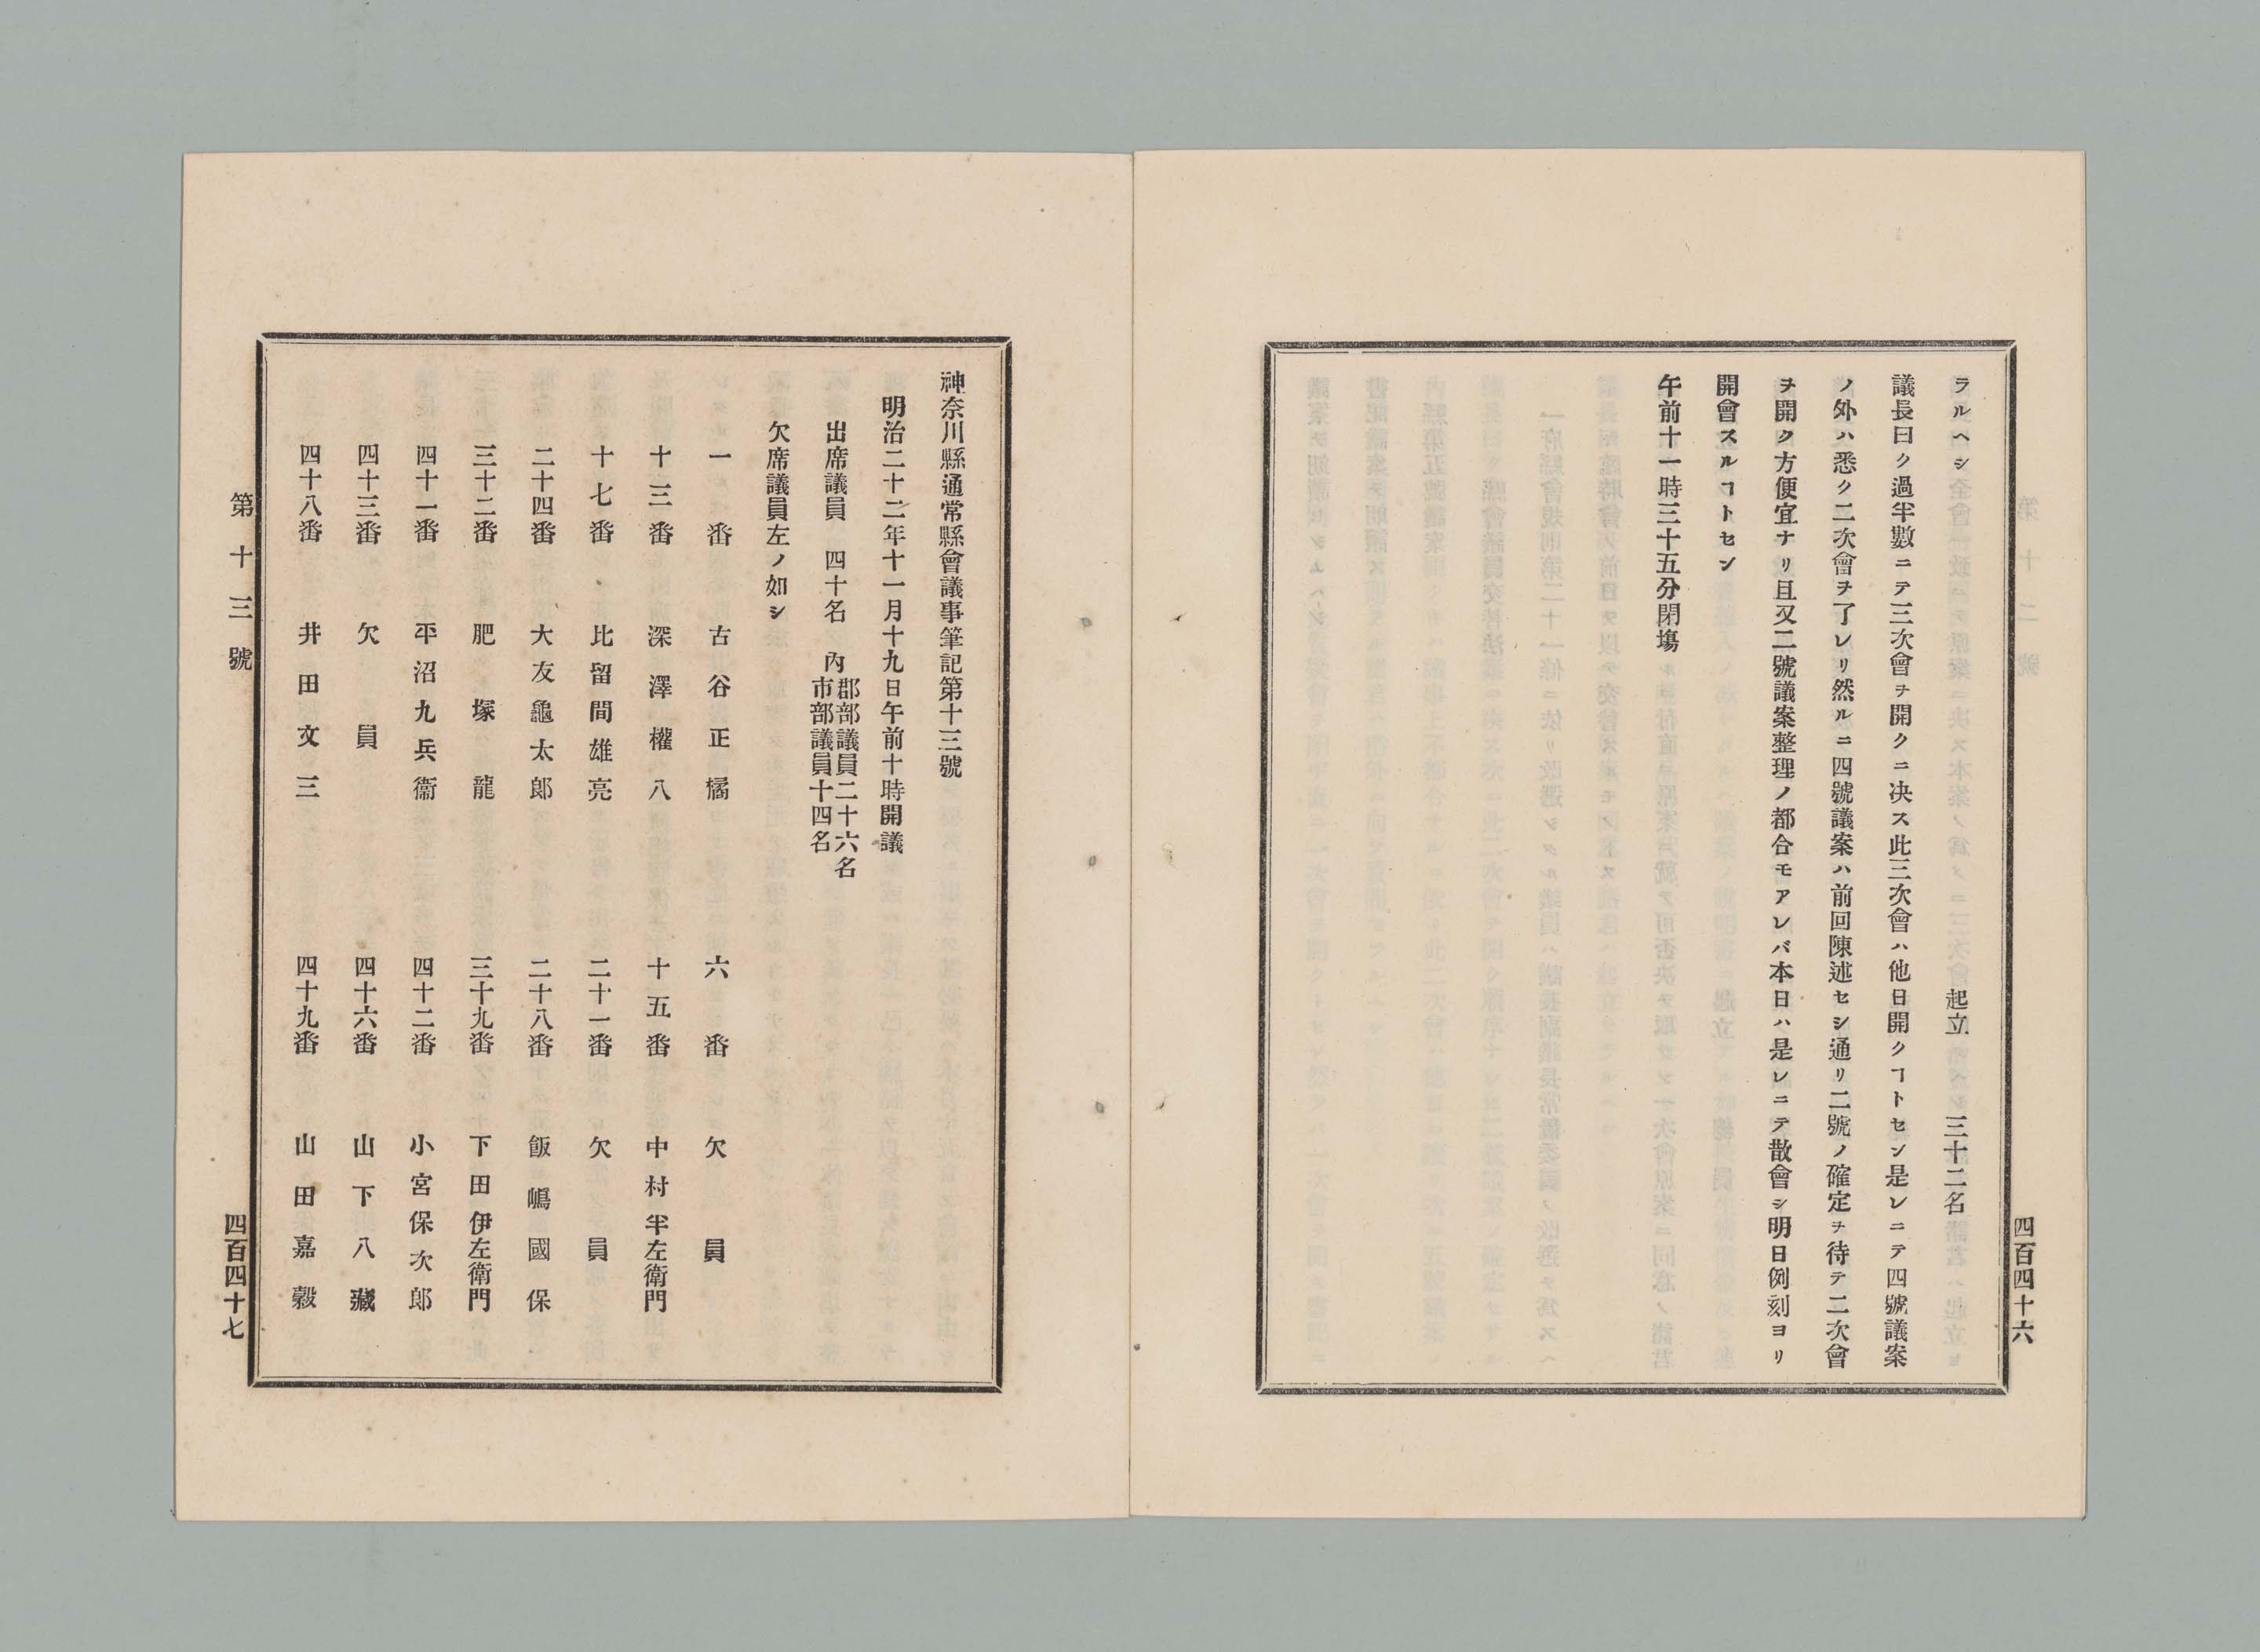 四百四十六
ラルヘシ
起立 三十二名
議長曰ク過半數ニテ三次會ヲ開クニ决ス此三次會ハ他日開クヿトセン是レニテ四號議案
ノ外ハ悉ク二次會ヲ了レリ然ルニ四號議案ハ前回陳述セシ通リ二號ノ確定ヲ待テ二次會
ヲ開ク方便宜ナリ且又二號議案整理ノ都合モアレバ本日ハ是レニテ散會シ明日例刻ヨリ
開會スルヿトセン
午前十一時三十五分閉塲
神奈川縣通常縣會議事筆記第十三號
明治二十二年十一月十九日午前十時開議
出席議員 四十名 內 郡部議員二十六名
市部議員十四名
欠席議員左ノ如シ
一番 古谷正橘 六番 欠員
十三番 深澤權八 十五番 中村半左衛門
十七番 比留間雄亮 二十一番 欠員
二十四番 大友龜太郎 二十八番 飯嶋國保
三十二番 肥塚龍 三十九番 下田伊左衛門
四十一番 平沼九兵衞 四十二番 小宮保次郎
四十三番 欠員 四十六番 山下八藏
四十八番 井田文三 四十九番 山田嘉穀
第十三號
四百四十七